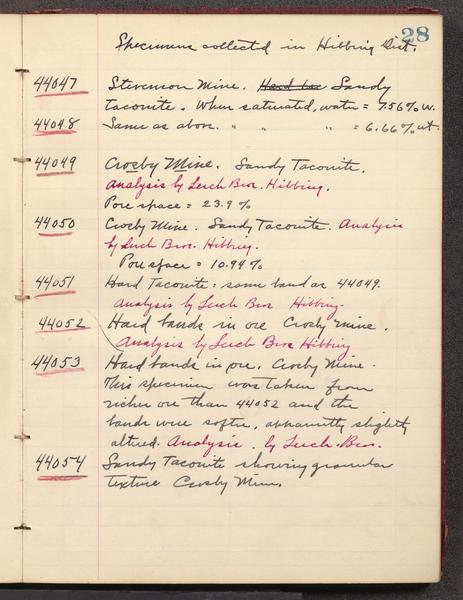 28
Specimens collected in Hibbing Dist.
44047 Stevenson Mine. Hard tac Sandy
taconite. When saturated, water = 7.56% w.
44048 Same as above. " " " = 6.66% wt.
44049 Crosby Mine. Sandy Taconite.
Analysis by Lerch Bros. Hibbing.
Pore space = 23.9%
44050 Crosby Mine. Sandy Taconite. Analysis
by Lerch Bros. Hibbing.
Pore space = 10.94%
44051 Hard Taconite: same band as 44049.
Analysis by Lerch Bros Hibbing.
44052 Hard bands in ore Crosby Mine.
Analysis by Lerch Bros Hibbing
44053 Hard bands in ore. Crosby Mine.
This specimen was taken from
richer ore than 44052 and the
bands were softer, apparently slightly
altered. Analysis by Lerch Bros.
44054 Sandy Taconite showing granular
texture Crosby Mine.